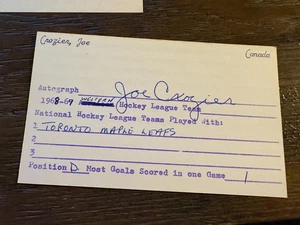 Crozier, Joe Canada
Autograph Joe Crozier
1968-69 WESTERN Hockey League Team
National Hockey League Teams Played With:
1 TORONTO MAPLE LEAFS
2
3
Position D. Most Goals Scored in one Game 1